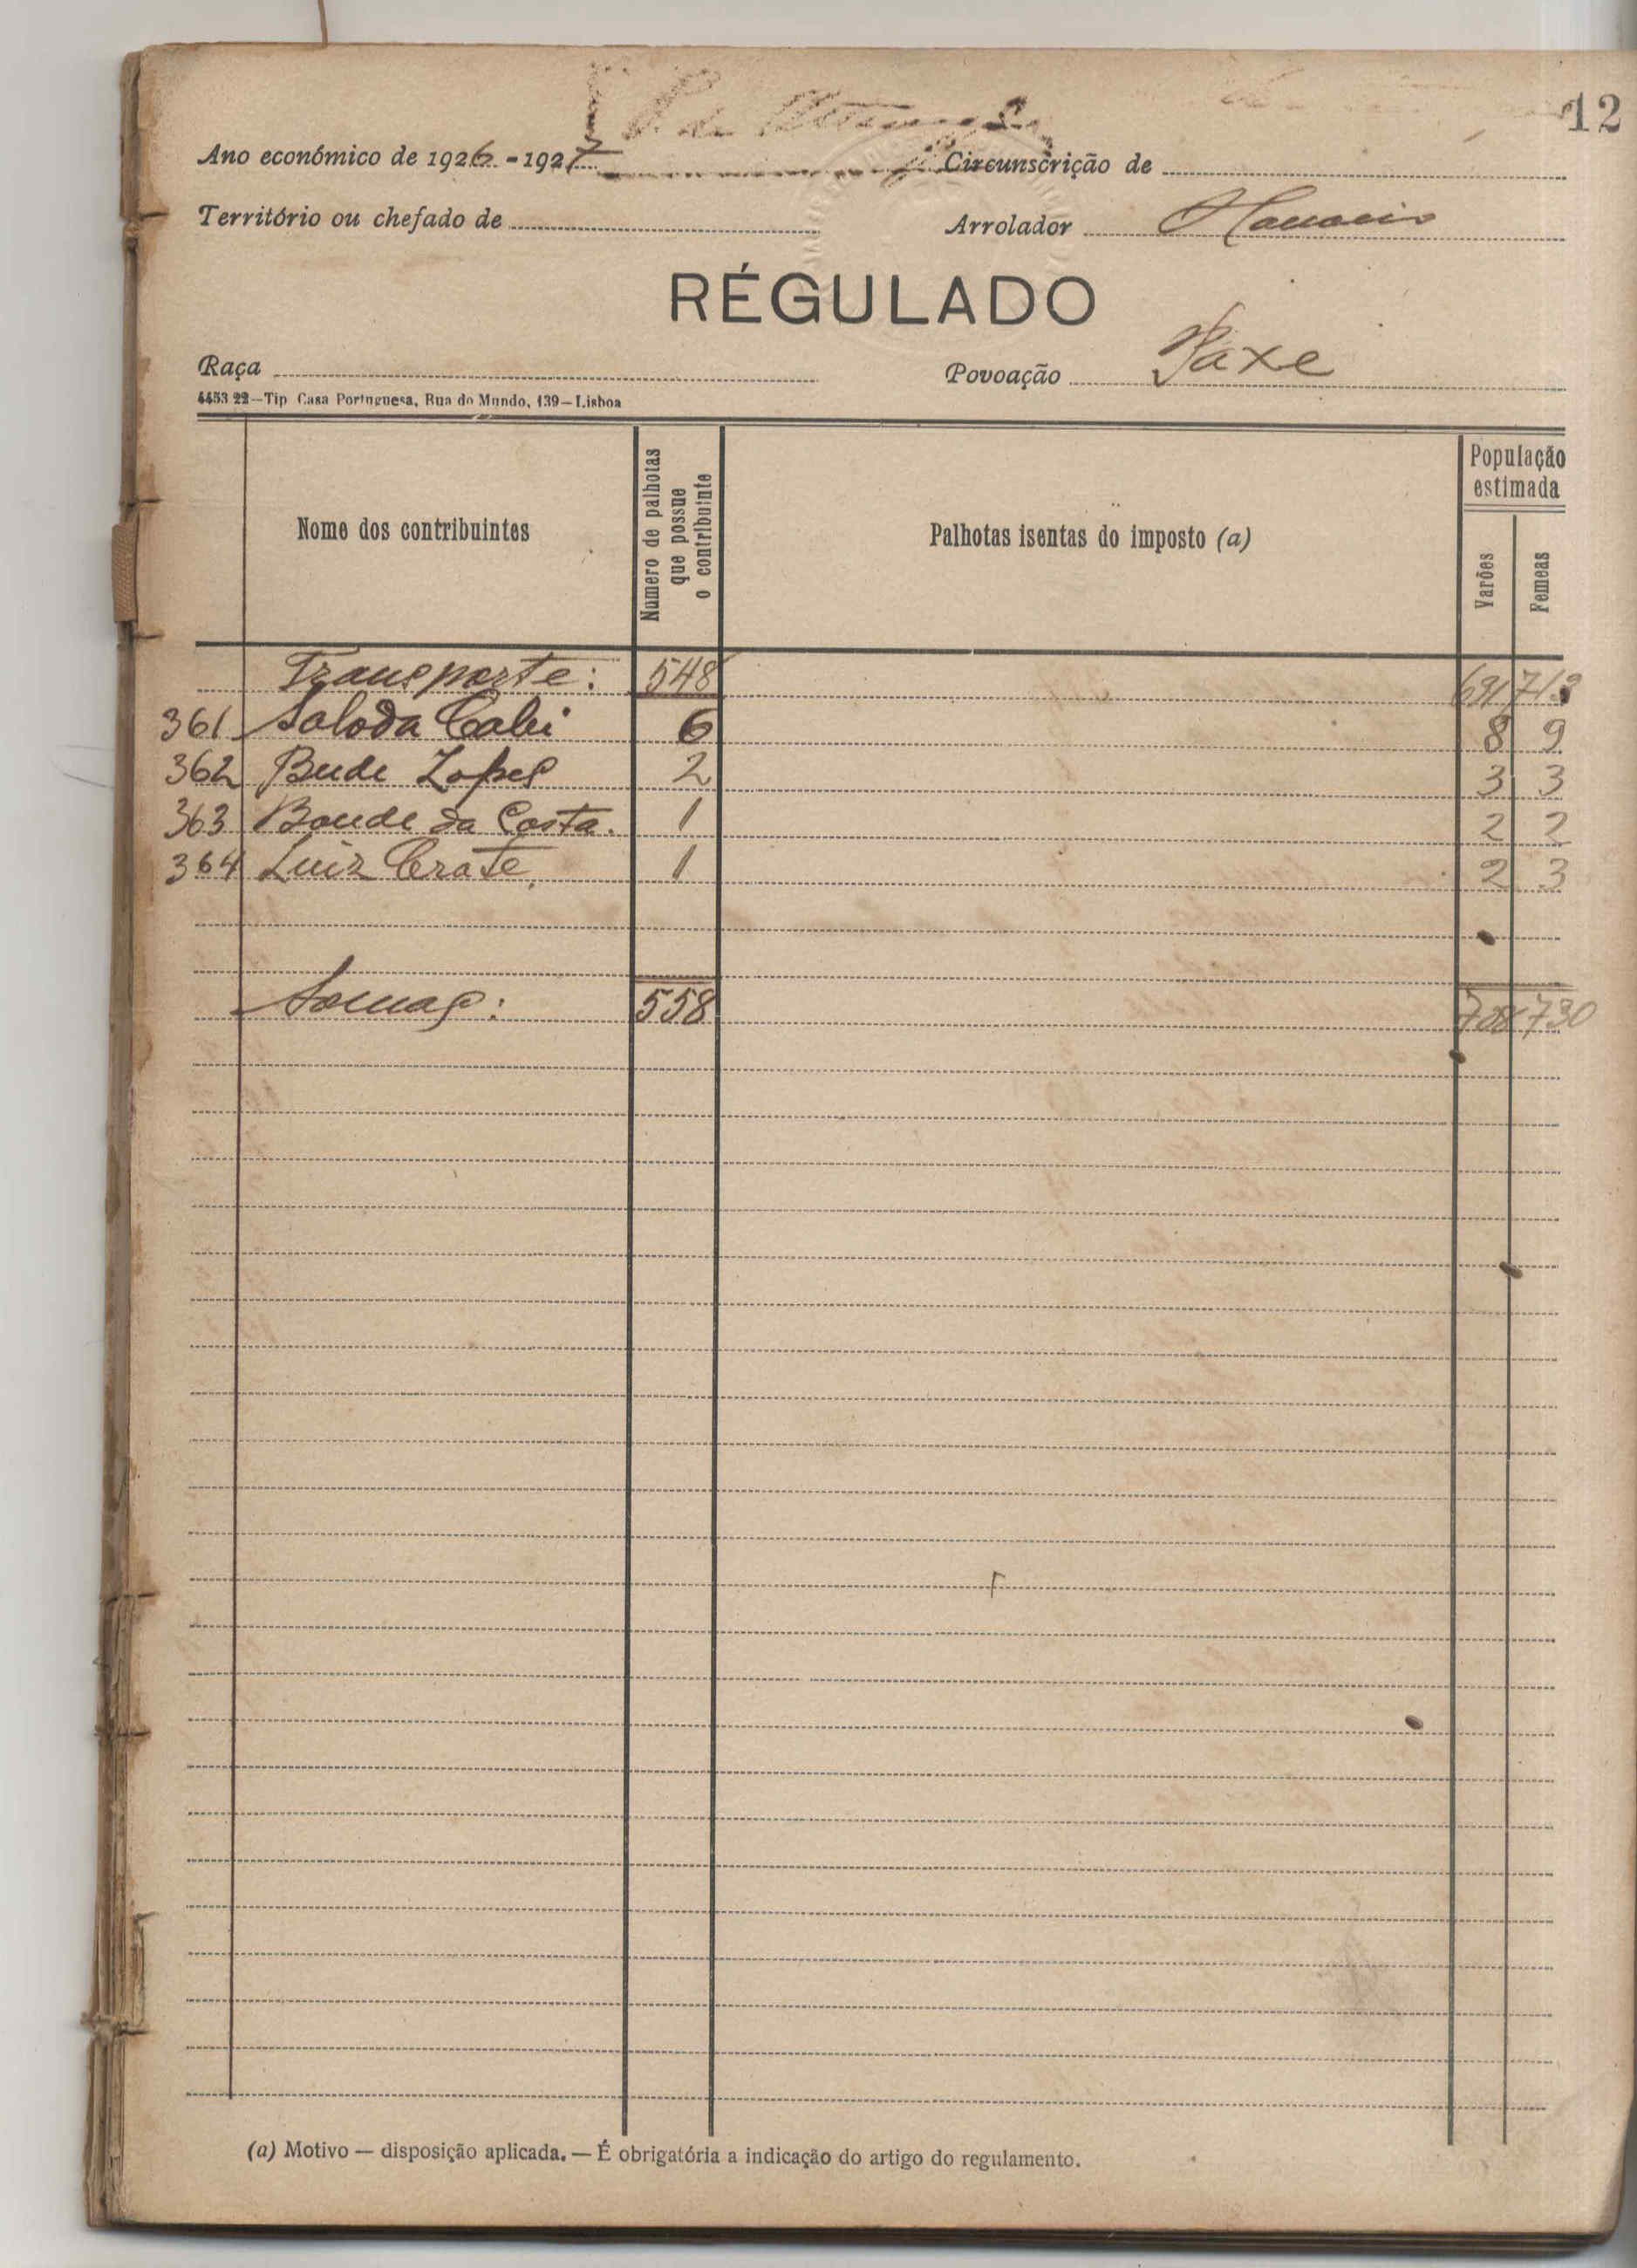 12
Ano económico de 1926 - 1927 Circunscrição de
Território ou chefado de Arrolador
RÉGULADO
Raça Povoação Paxe
4453 22—Tip Casa Portuguesa, Rua do Mundo, 139—Lisboa
Nome dos contribuintes
Numero de palhotas
que possue
o contribuinte
Palhotas isentas do imposto (a)
População
estimada
Varões
Femeas
Transporte: 548 691 713
361 Saloda Cabi 6 8 9
362 Bude Lopes 2 3 3
363 Boude da Costa. 1 2 2
364 Luiz Crate. 1 2 3
Somas: 558 708 730
(a) Motivo — disposição aplicada. — É obrigatória a indicação do artigo do regulamento.